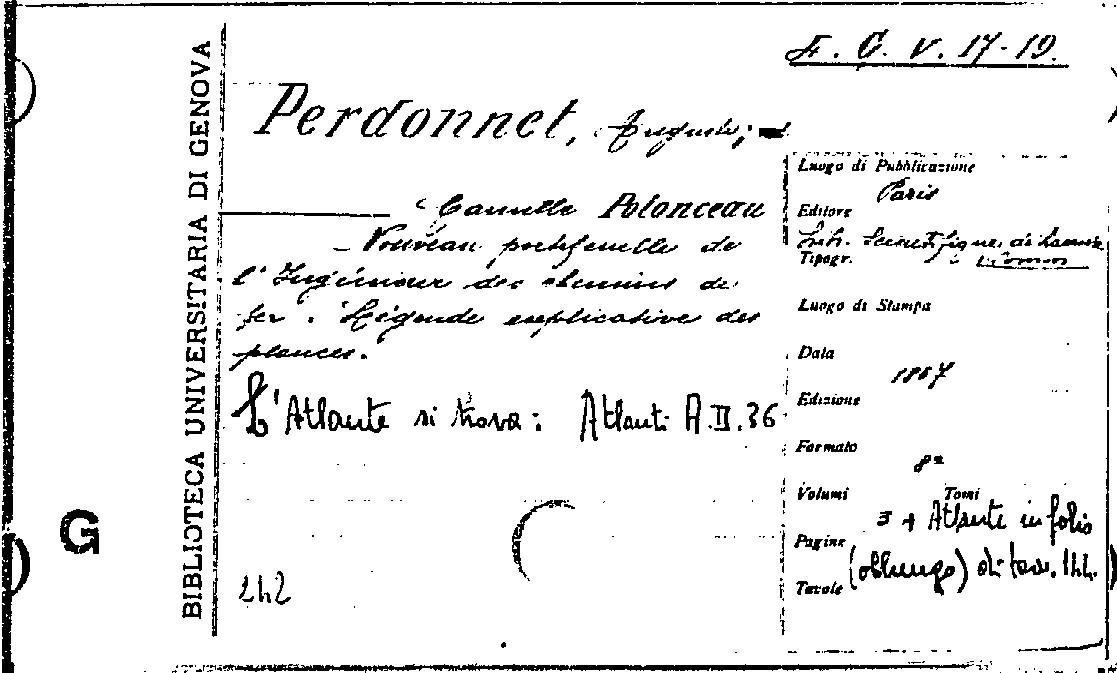 F. G. V. 17-19.
BIBLIOTECA UNIVERSITARIA DI GENOVA
Perdonnet, Auguste; e
Camille Polonceau
- Nouveau portefeuille de
l'Ingénieur des chemins de
fer. Légende explicative des
planches.
L'Atlante si trova: Atlanti A.II.36
Luogo di Pubblicazione
Paris
Editore
Lib. Scientifique de Lacroix
Tipogr.
Luogo di Stampa
Data
1867
Edizione
Formato
8°
Volumi
Tomi
3 + Atlante in folio
Pagine
(oblungo) di tav.
Tavole
G
242